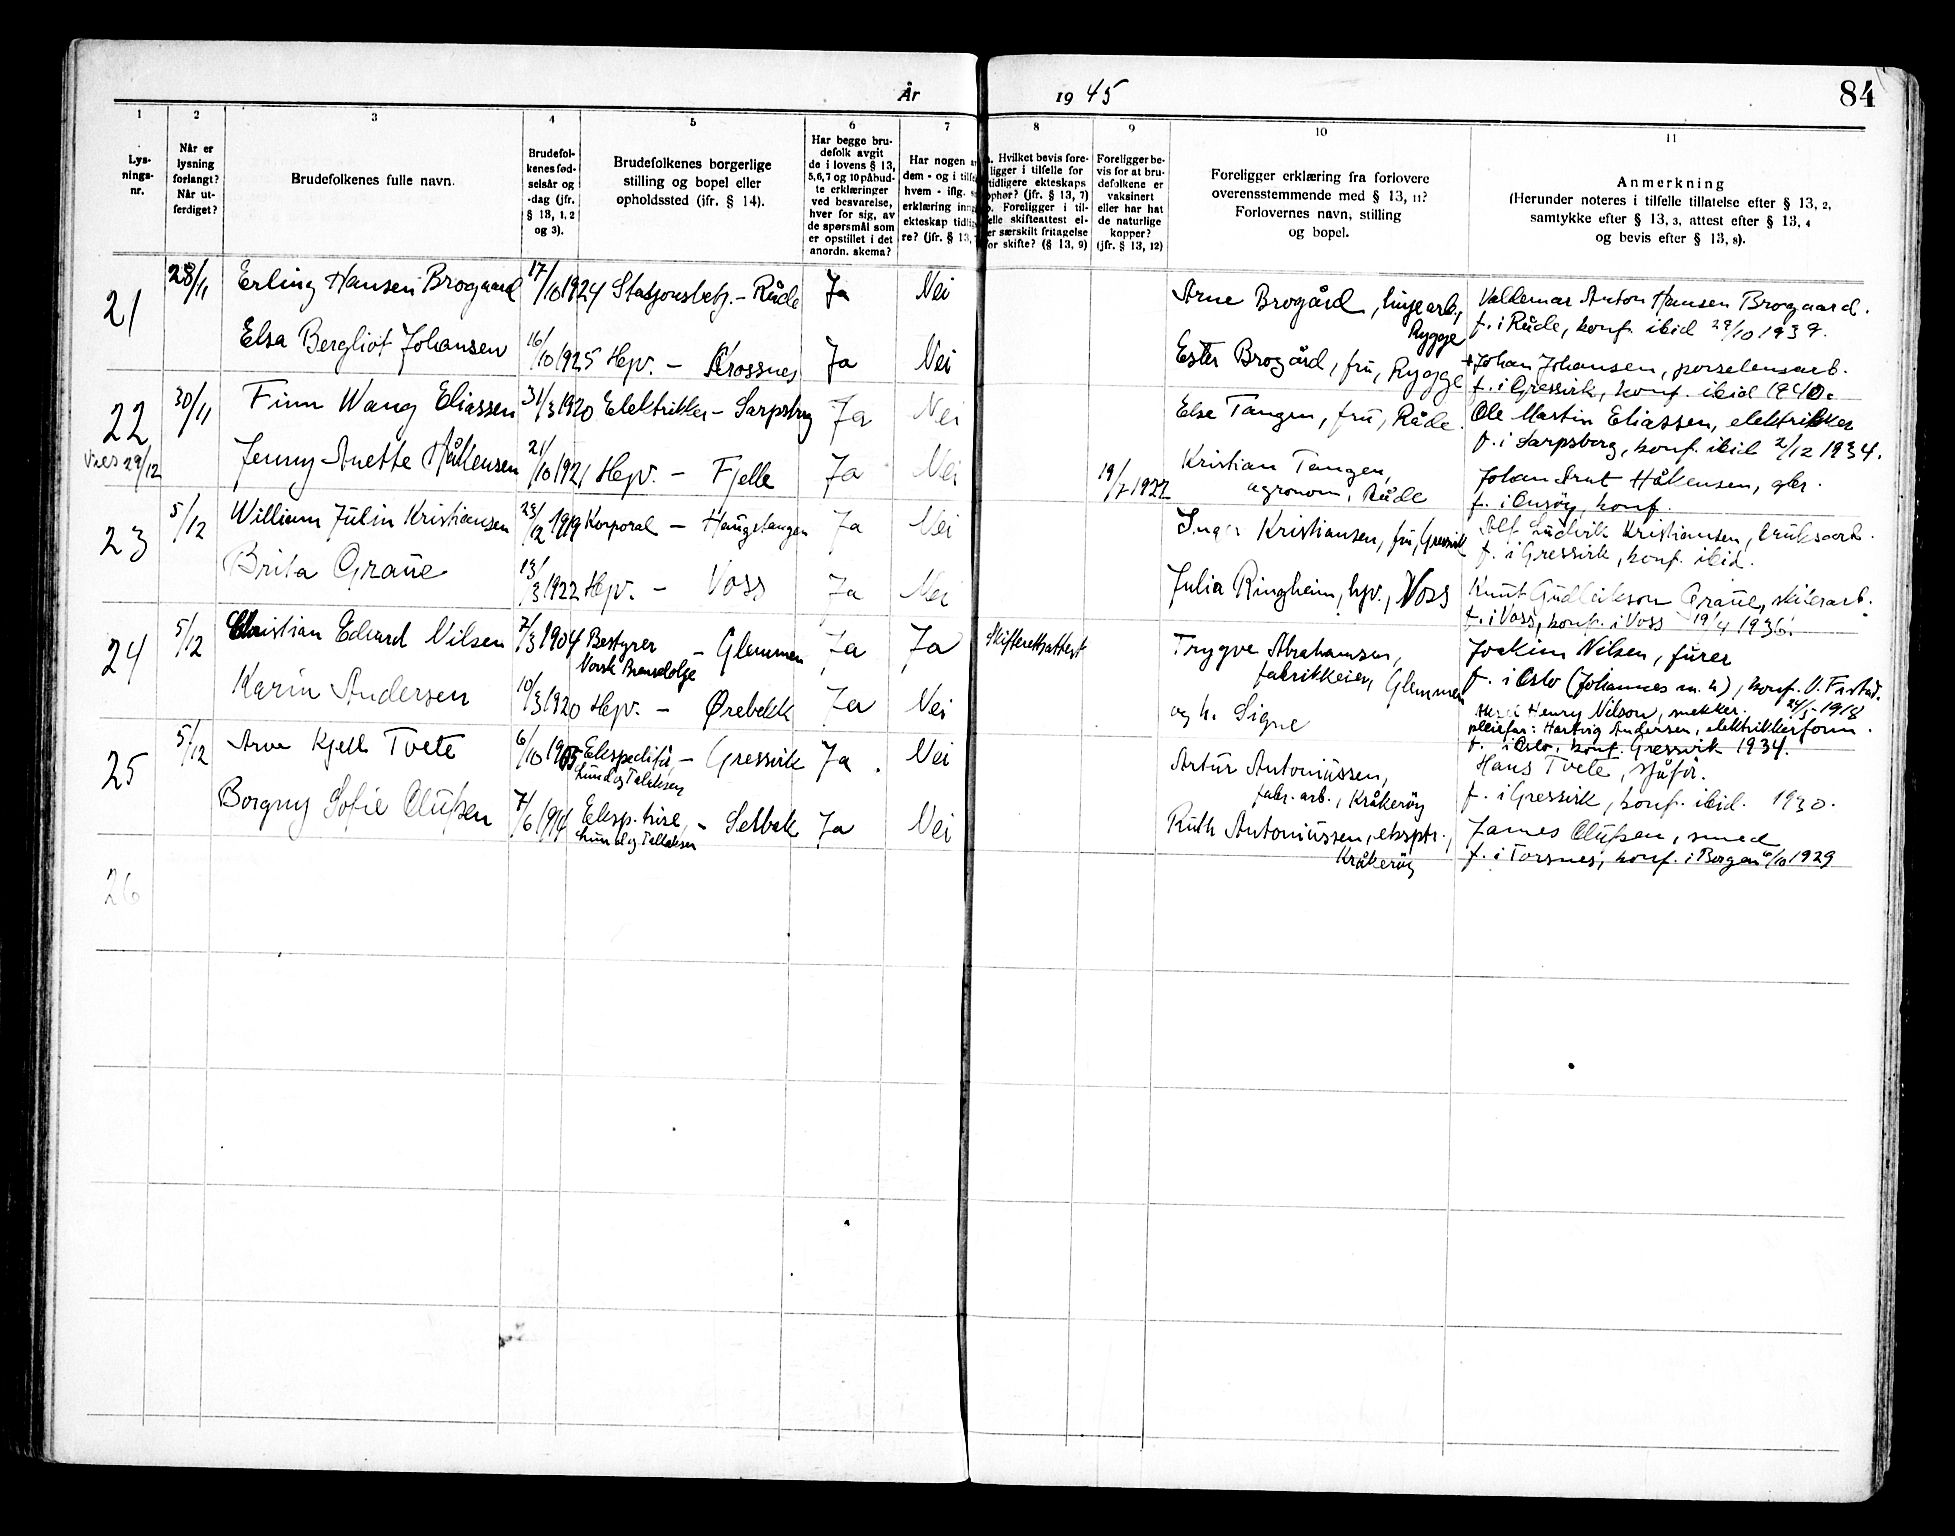 År 1945
84
1 2 3 4 5 6 7 8 9 10 11
Lys-
nings-
nr.
Når er
lysning
forlangt?
Når ut-
ferdiget?
Brudefolkenes fulle navn.
Brudefol-
kenes fød-
selsår og
-dag (jfr.
§ 13, 1, 2
og 3).
Brudefolkenes borgerlige
stilling og bopel eller
opholdssted (jfr. § 14).
Har begge bru-
defolk avgit
de i lovens § 13,
5, 6, 7 og 10 påbud-
te erklæringer
ved besvarelse,
hver for sig, av
de spørsmål som
er opstillet i det
anordn. skema?
Har nogen
dem - og i
hvem - iflg.
erklæring
ekteskap
re? (jfr. § 13,
Hvilket bevis fore-
ligger i tilfelle for
tidligere ekteskaps
ophør? (jfr. § 13, 7)
Foreligger i til-
felle skifteattest el-
ler særskilt fritagelse
for skifte? (§ 13, 9)
Foreligger be-
vis for at bru-
defolkene er
vaksinert
eller har hat
de naturlige
kopper?
(jfr. § 13, 12)
Foreligger erklæring fra forlovere
overensstemmende med § 13, 11?
Forlovernes navn, stilling
og bopel.
Anmerkning
(Herunder noteres i tilfelle tillatelse efter § 13, 2,
samtykke efter § 13, 3, attest efter § 13, 4
og bevis efter § 13, 8).
21 28/11 Erling Hansen Brogaard 17/10 1924 Stasjonsbetj. - Råde Ja Nei Arne Brogård, linjearb., Rygge
Valdemar Anton Hansen Brogaard.
f. i Råde, konf. ibid 29/10 1939.
Elsa Bergliot Johansen 16/10 1925 Hpv. - Krossnes Ja Nei Ester Brogård, fru, Rygge
Johan Johansen, porselensarb.
f. i Gressvik, konf. ibid 1940.
22 30/11 Finn Wang Eliassen 31/3 1920 Elektriker - Sarpsborg Ja Nei Else Tangen, fru, Råde.
Ole Martin Eliassen, elektriker
f. i Sarpsborg, konf. ibid 2/12 1934.
Vies 29/12 Jenny Anette Håkensen 21/10 1921 Hpv. - Fjelle Ja Nei 19/7 1922 Kristian Tangen,
agronom, Råde
Johan Arnt Håkensen, gbr.
f. i Onsøy, konf.
23 5/12 William Julin Kristiansen 23/12 1919 Korporal - Haugstangen Ja Nei Inger Kristiansen, fru, Gressvik
Alf Ludvik Kristiansen, bruksarb.
f. i Gressvik, konf. ibid.
Brita Graue 13/3 1922 Hpv. - Voss Ja Nei Julia Ringheim, hpv., Voss
Knut Gudleikson Graue,
f. i Voss, konf. i Voss 19/4 1936.
24 5/12 Christian Edvard Nilsen 7/3 1904 Bestyrer - Glemmen Ja Ja Skifterettsattest Trygve Abrahamsen,
Norsk Brendolje
fabrikkeier, Glemmen
Joakim Nilsen, fürer
f. i Oslo (Johannes m. h), konf. V. Frstad.
24/5 1918
Karin Andersen 10/3 1920 Hpv. - Ørebekk Ja Nei og h. Signe
Henry Nilson, snekker.
pleiefar: Hartvig Andersen, elektrikerform.
f. i Oslo, konf. Gressvik 1934.
25 5/12 Arve Kjell Tvete 6/10 1915 Ekspeditør - Gressvik Ja Nei Artur Antoniussen,
Lund og Tallaksen
fabr. arb., Kråkerøy
Hans Tvete, sjåfør.
f. i Gressvik, konf. ibid. 1930.
Borgny Sofie Olufsen 7/6 1914 Eksp. trise, - Selbak Ja Nei Ruth Antoniussen, eksptr.,
Lund og Tallaksen
Kråkerøy
James Olufsen, smed
f. i Torsnes, konf. i Borgen 6/10 1929
26